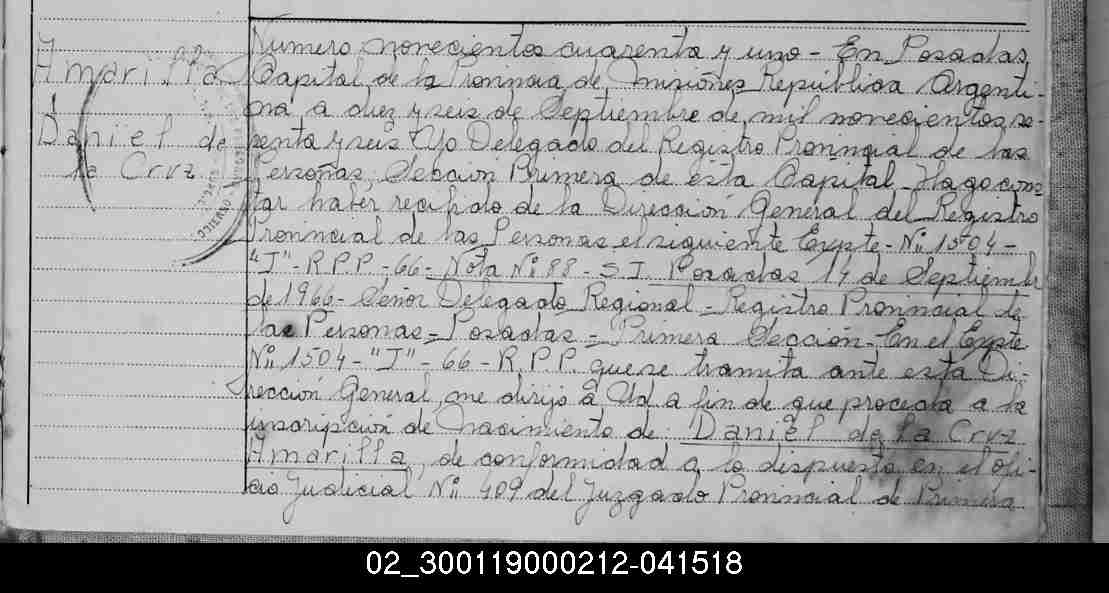 Amarilla
Daniel de
la Cruz
Número novecientos cuarenta y uno - En Posadas,
Capital de la Provincia de Misiones República Argenti-
na a diez y seis de Septiembre de mil novecientos se-
senta y seis Yo Delegado del Registro Provincial de las
Personas, Sección Primera de esta Capital - Hago cons-
tar haber recibido de la Dirección General del Registro
Provincial de las Personas el siguiente Expte - Nº 1504 -
"J" - R.P.P - 66 - Nota Nº 88 - S.I. Posadas 14 de Septiembre
de 1966 - Señor Delegado Regional - Registro Provincial de
las Personas - Posadas - Primera Sección - En el Expte
Nº 1504 - "J" - 66 - R.P.P. que se tramita ante esta Di-
rección General, me dirijo a Ud a fin de que proceda a la
inscripción de Nacimiento de: Daniel de la Cruz
Amarilla, de conformidad a lo dispuesto en el ofi-
cio Judicial Nº 409 del Juzgado Provincial de Primera
02_300119000212-041518